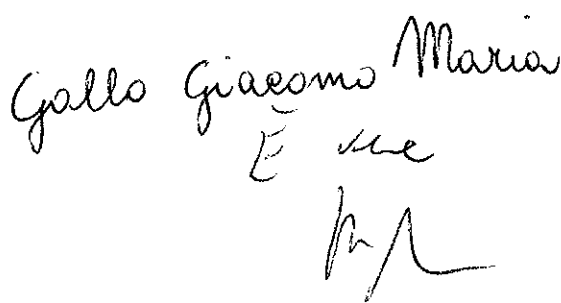 Gallo Giacomo Maria
È